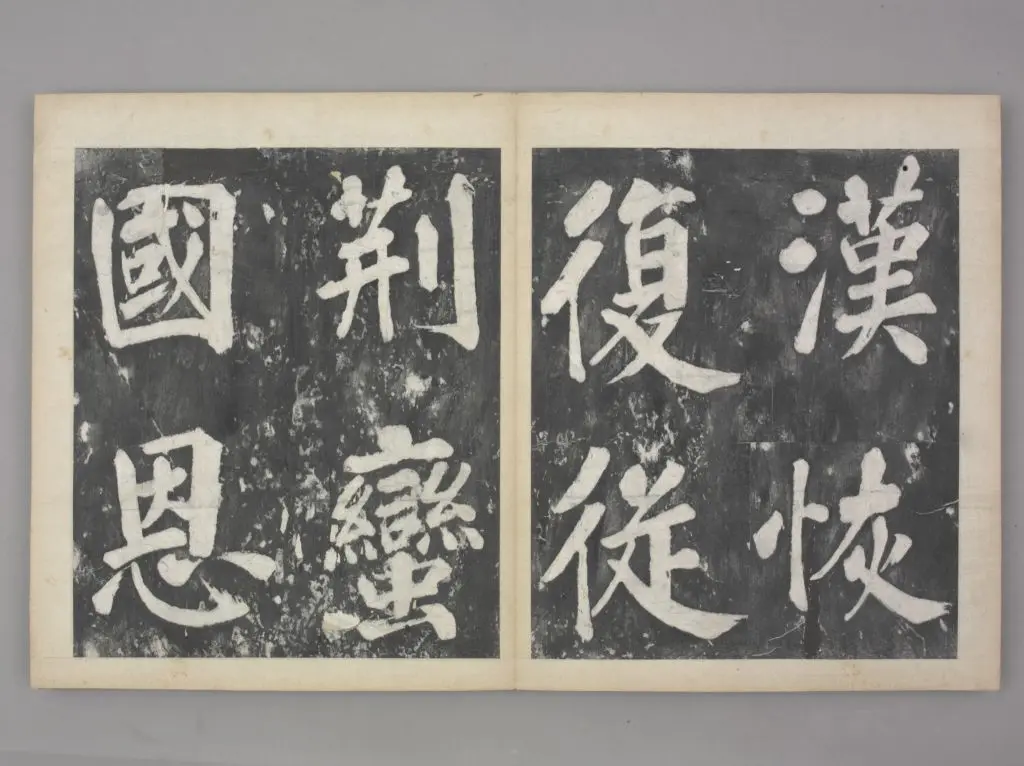 漢恢
復從
荆蠻
國恩